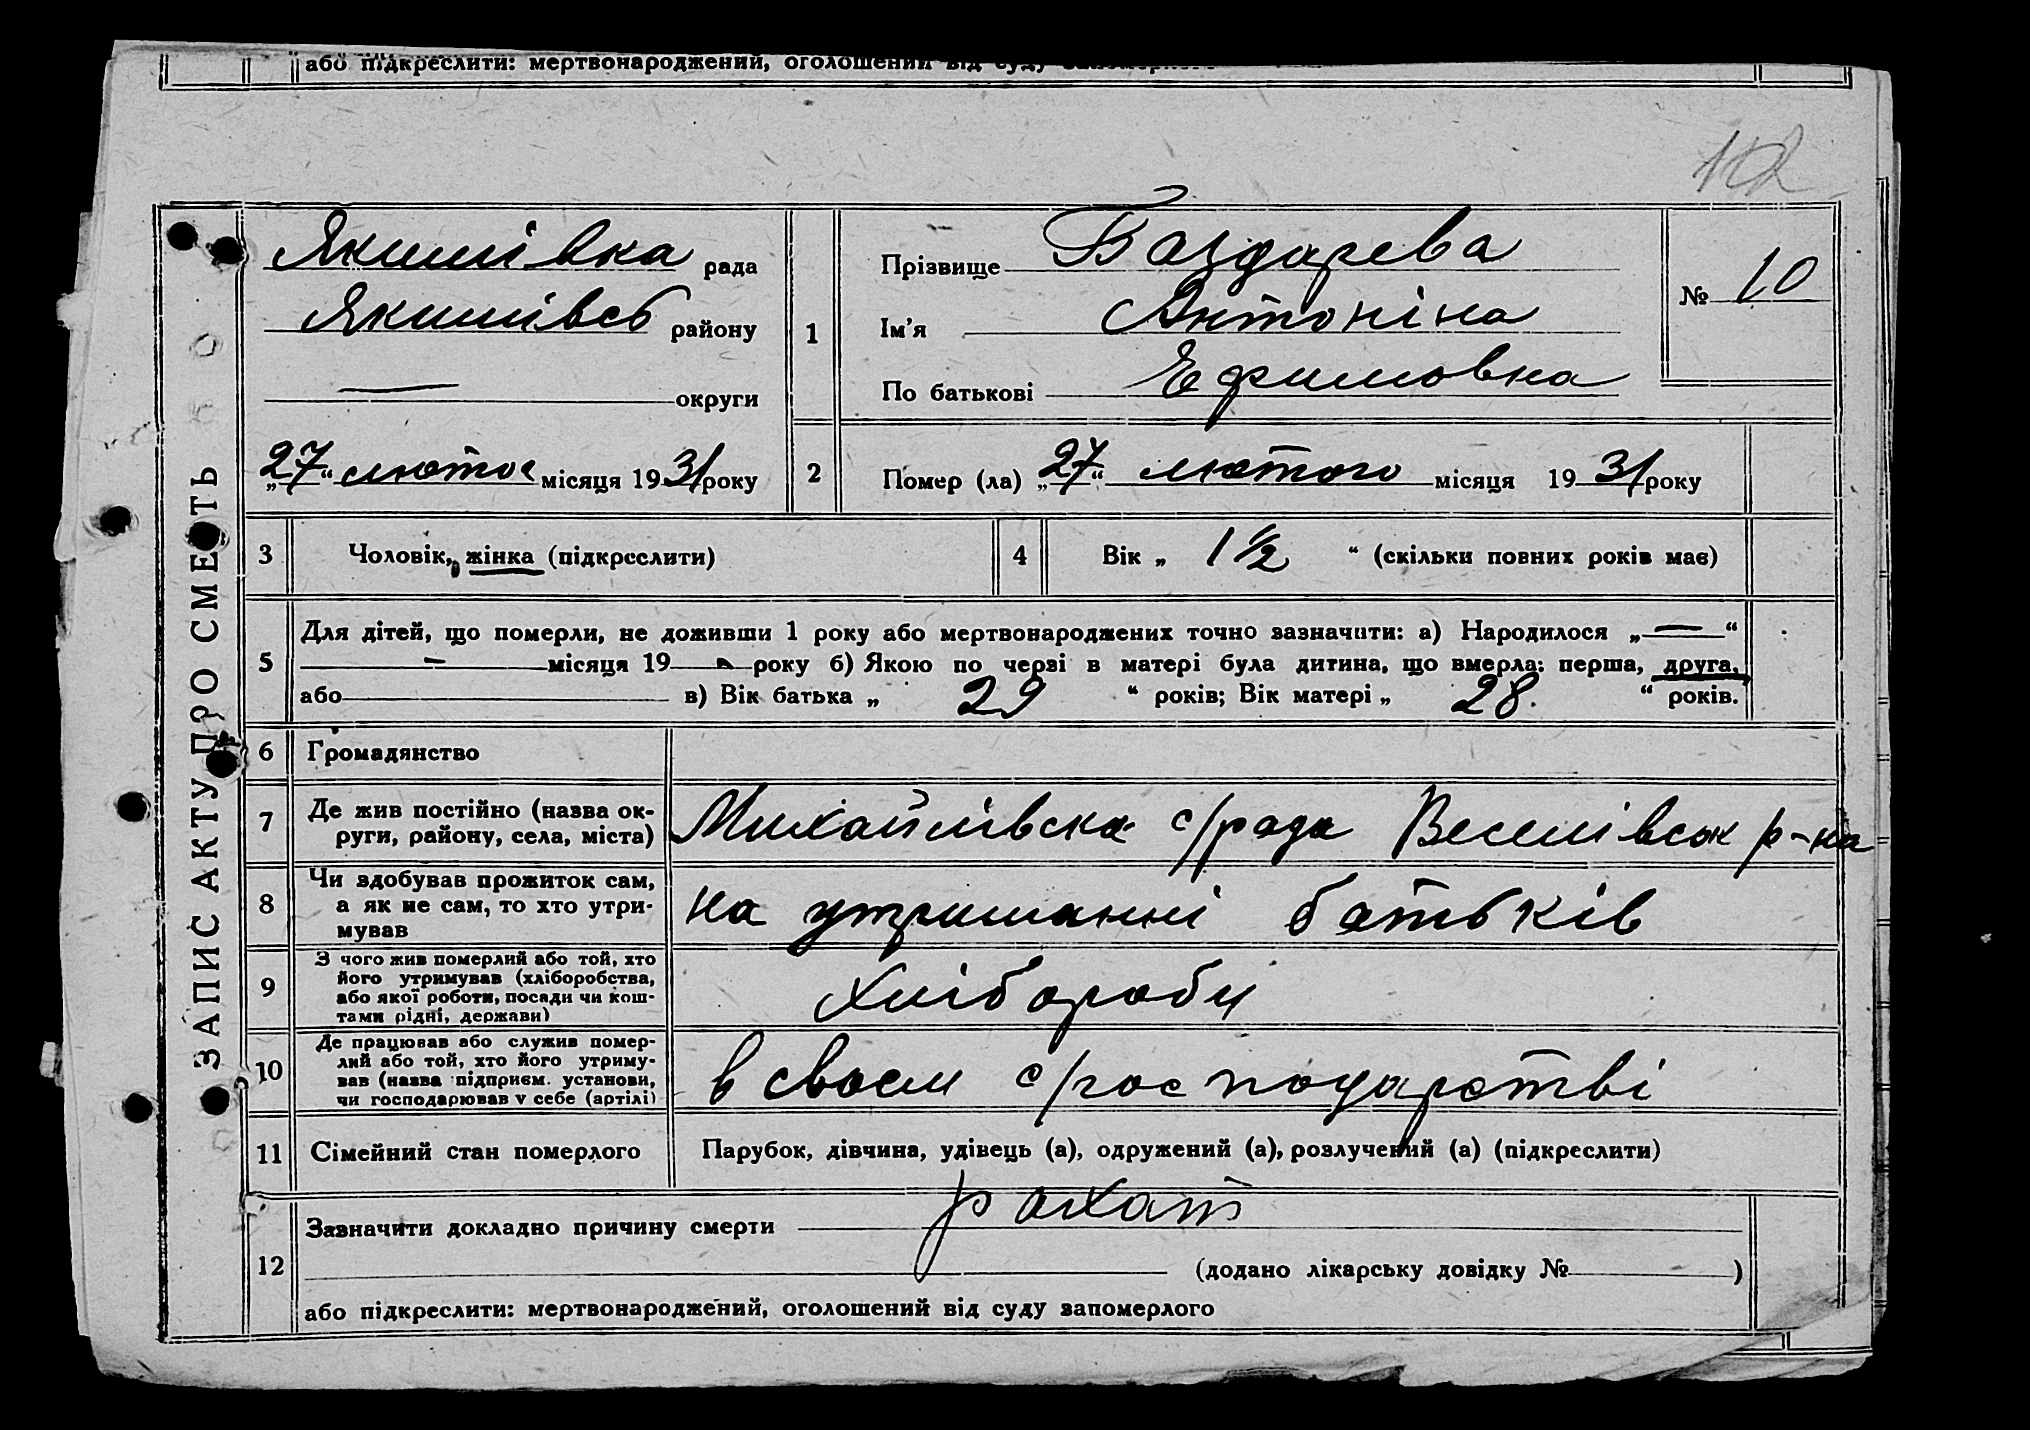 або підкреслити: мертвонароджений, оголошений від суду запомерлого
112
ЗАПИС АКТУ ПРО СМЕРТЬ
Якимівка рада
Якимівсь району
— округи
„27“ лютого місяця 1931 року
1
Прізвище Баздарева
Ім’я Антоніна
По батькові Ефимовна
№ 10
2
Помер (ла) „27“ лютого місяця 1931 року
3 Чоловік, жінка (підкреслити)
4 Вік „ 1 ½ “ (скільки повних років має)
5
Для дітей, що померли, не доживши 1 року або мертвонароджених точно зазначити: а) Народилося „—“
— місяця 19 — року б) Якою по черзі в матері була дитина, що вмерла: перша, друга,
або в) Вік батька „ 29 “ років; Вік матері „ 28. “ років.
6 Громадянство
7 Де жив постійно (назва ок-
руги, району, села, міста)
Михайлівска с/рада Веселівськ р-на
8 Чи здобував прожиток сам,
а як не сам, то хто утри-
мував
на утриманні батьків
9 З чого жив померлий або той, хто
його утримував (хліборобства,
або якої роботи, посади чи кош-
тами рідні, держави)
хлібороби
10 Де працював або служив помер-
лий або той, хто його утриму-
вав (назва підприєм. установи,
чи господарював у себе (артілі)
в своєм с/господарстві
11 Сімейний стан померлого
Парубок, дівчина, удівець (а), одружений (а), розлучений (а) (підкреслити)
12
Зазначити докладно причину смерти рахит
(додано лікарську довідку № )
або підкреслити: мертвонароджений, оголошений від суду запомерлого